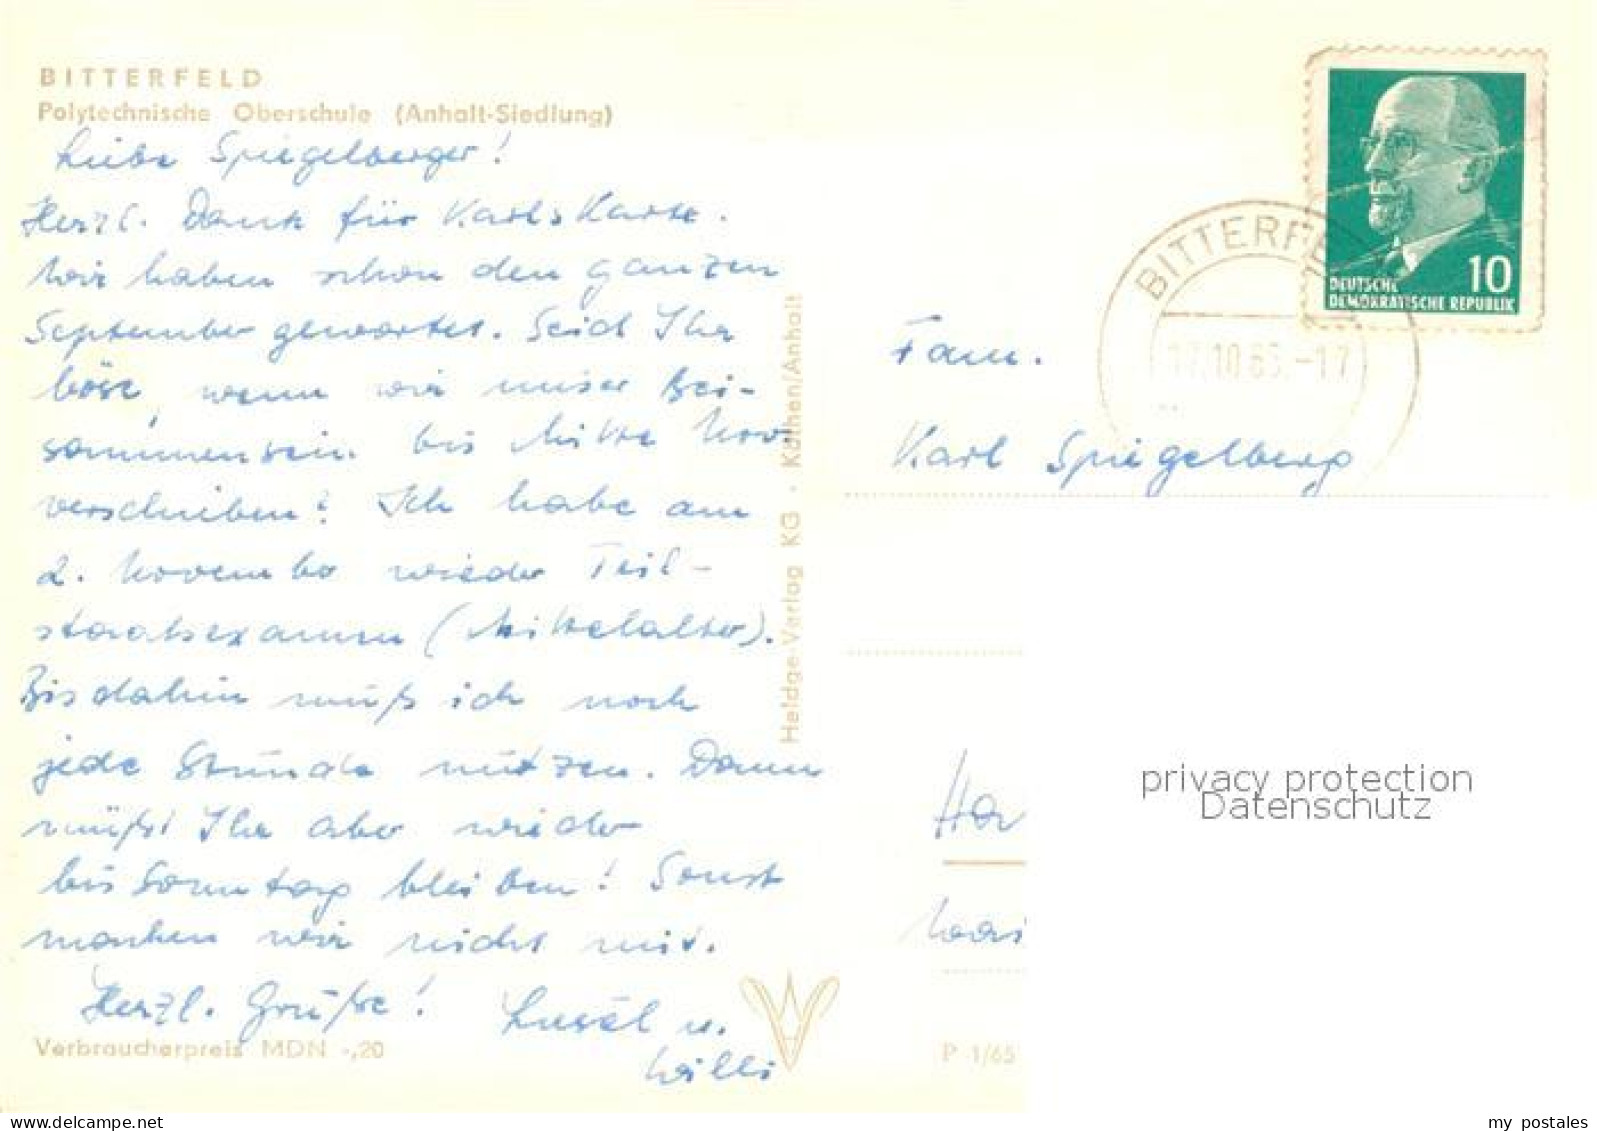 BITTERFELD
Polytechnische Oberschule (Anhalt-Siedlung)
Liebe Spiegelberger!
Herzl. Dank für Karls Karte.
Wir haben schon den ganzen
September gewartet. Seid Ihr
böse, wenn wir unser Bei-
sammensein bis Mitte Nov.
verschieben? Ich habe am
2. November wieder Teil-
staatsexamen (Mittelalter).
Bis dahin muß ich noch
jede Stunde nutzen. Dann
müßt Ihr aber wieder
bis Sonntag bleiben! Sonst
machen wir nicht mit.
Herzl. Grüße! Lusel u.
Willi
Verbraucherpreis MDN -,20
Heldge-Verlag KG · Köthen/Anhalt
DEUTSCHE
DEMOKRATISCHE REPUBLIK
10
BITTERFELD
17.10.65.-17
Fam.
Karl Spiegelberg
Ha
P 1/65
privacy protection
Datenschutz
my postales